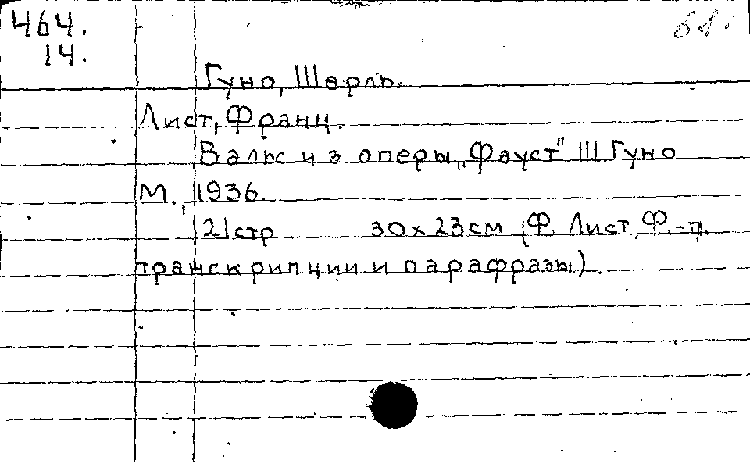 464.
14.
Гуно, Шарль.
Лист, Франц.
Вальс из оперы „Фауст" Ш Гуно
М., 1936.
21 стр 30 x 23 см (Ф. Лист. Ф-п.
транскрипции и парафразы).